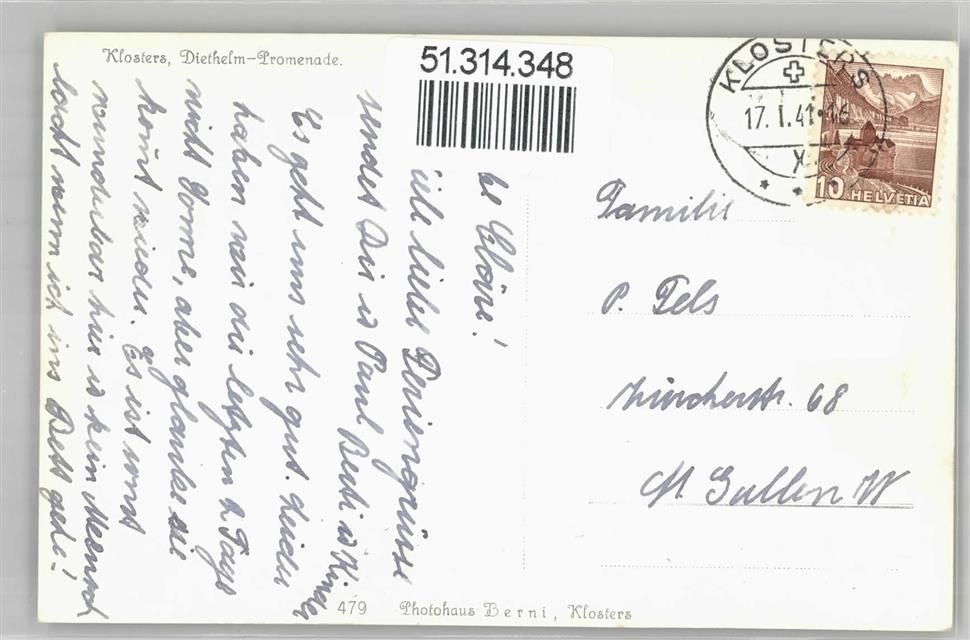 Klosters, Diethelm-Promenade.
51.314.348
KLOSTERS
17. I. 41
10 HELVETIA
Kläre!
liebe Feriengrüsse
sendet Dir Paul Berti
Es geht uns sehr gut. Leider
haben wir die letzten 2 Tage
nicht Sonne, aber glaube sie
kom̄t wieder. Es ist sonst
wunderbar hier kein Mensch
lacht wenn ich ins Bett gehe!
Familie
P. Fels
Zürcherstr. 68
St Gallen W
479 Photohaus Berni, Klosters